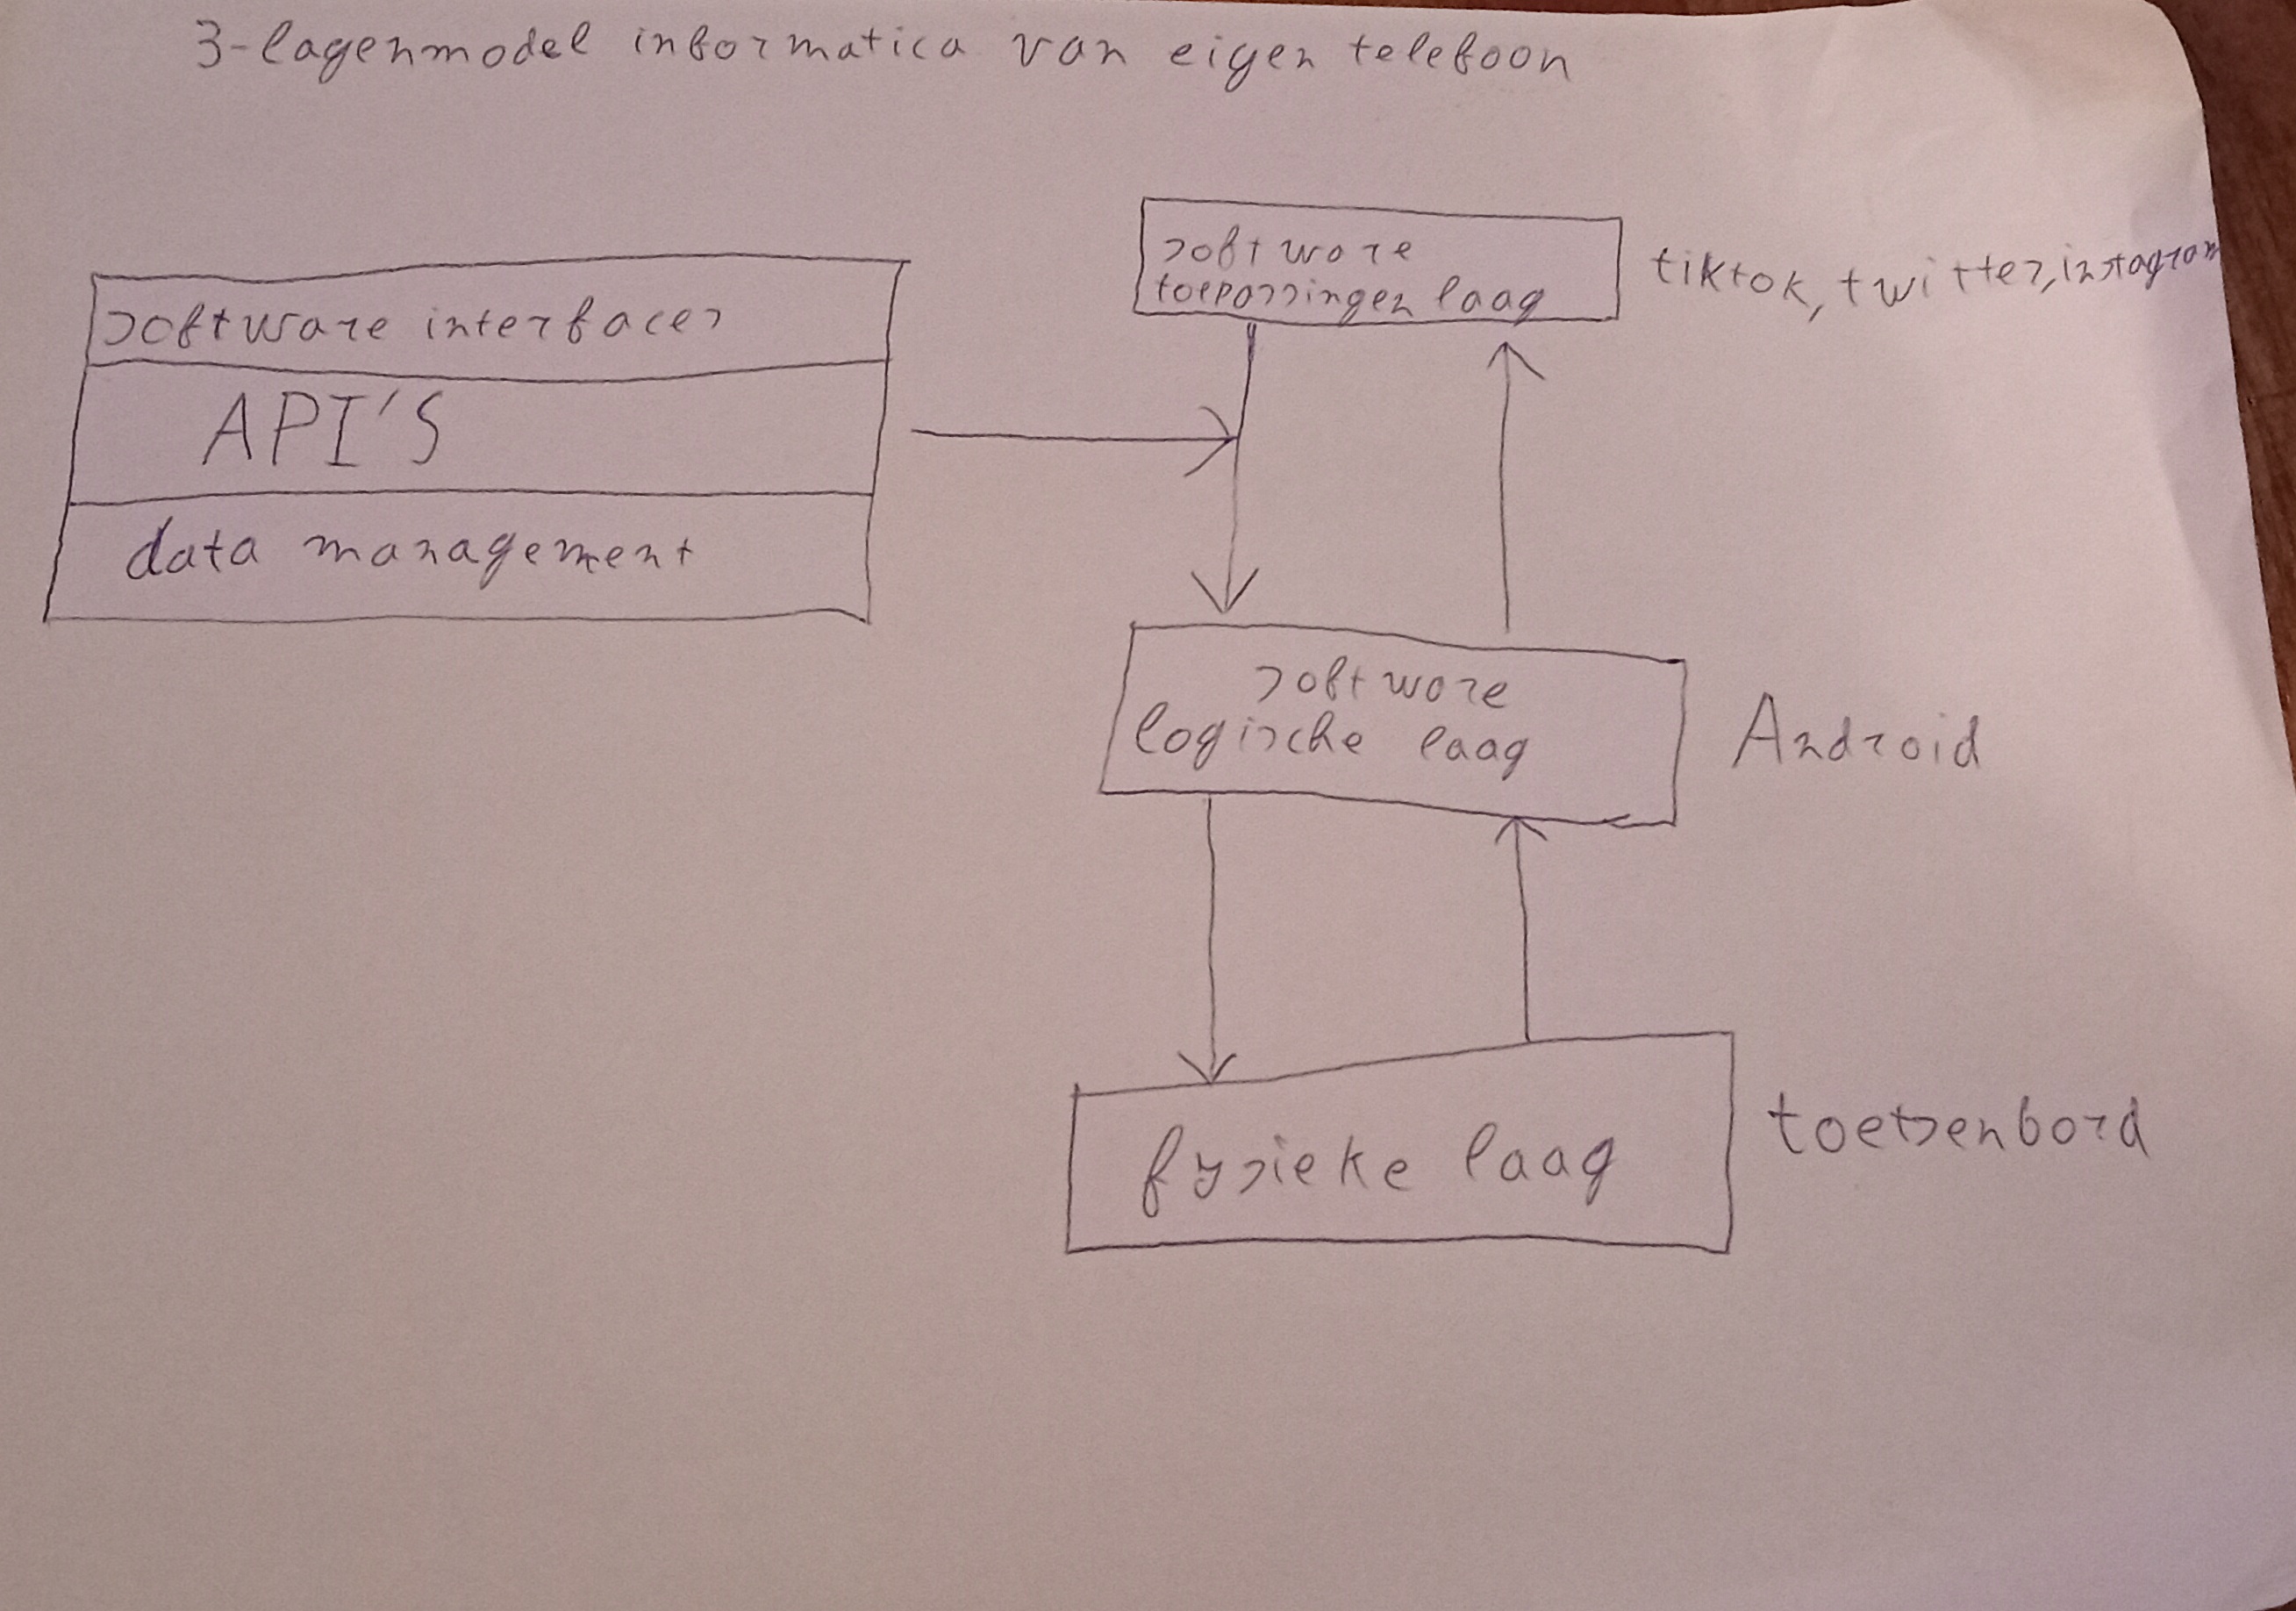 3-lagenmodel informatica van eigen telefoon
software interfaces
API'S
data management
software
toepassingen laag
tiktok, twitter, instagram
software
logische laag
Android
fysieke laag
toetsenbord